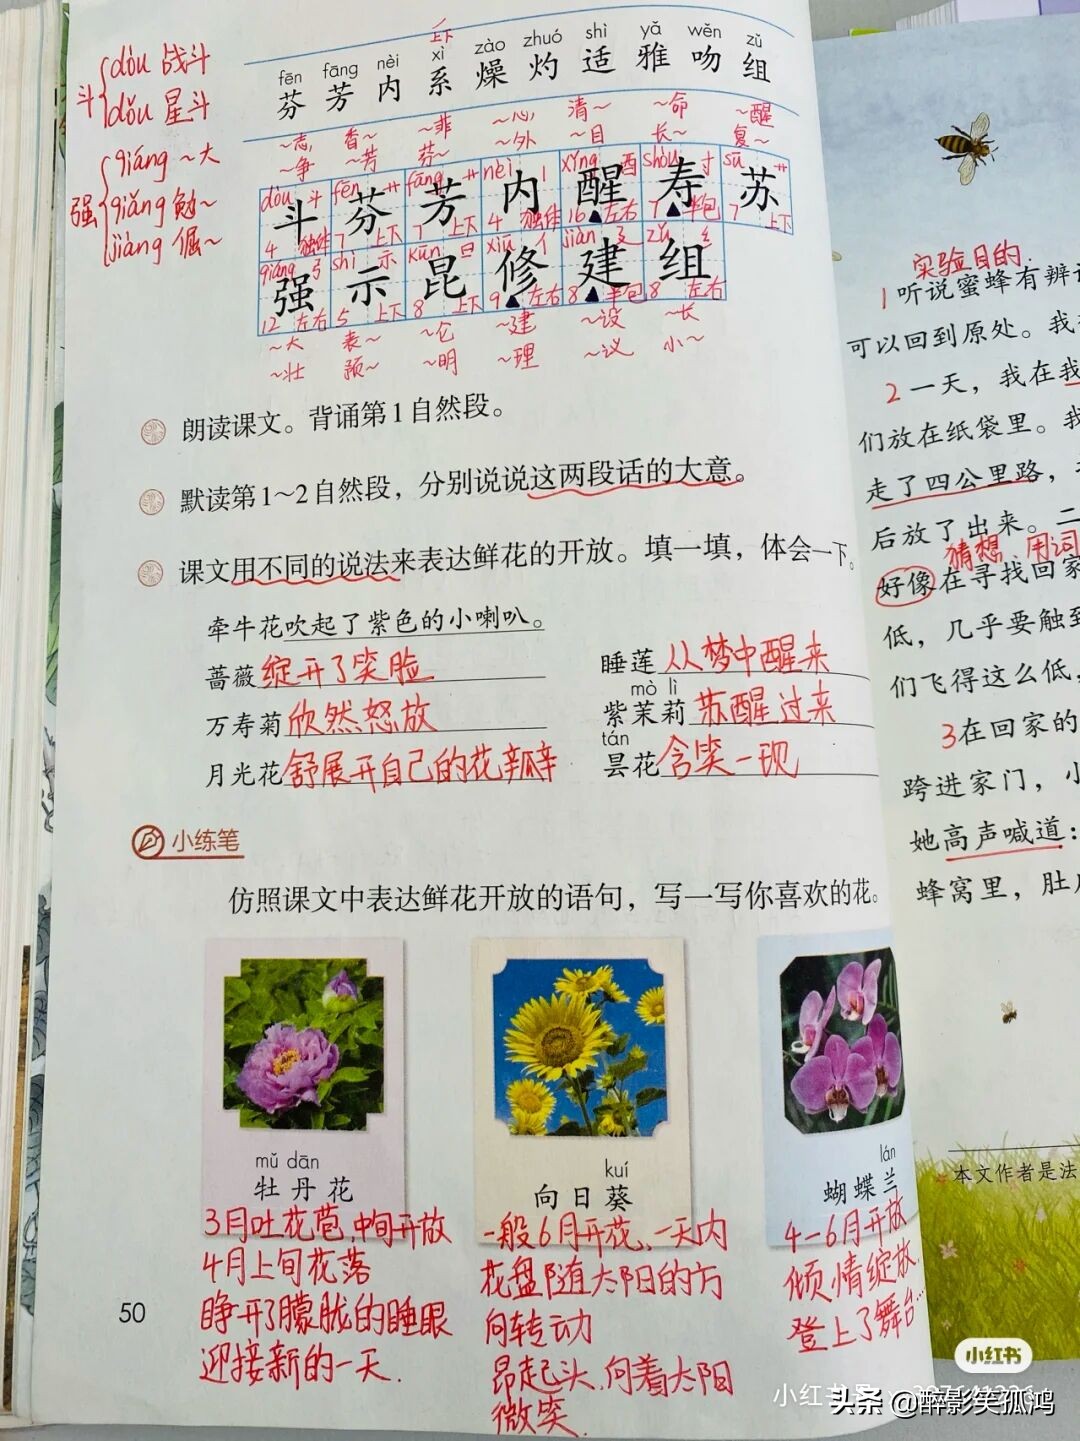 斗 dòu 战斗
dǒu 星斗
强 qiáng ～大
qiǎng 勉～
jiàng 倔～
上下
fēn fāng nèi xì zào zhuó shì yǎ wěn zǔ
芬 芳 内 系 燥 灼 适 雅 吻 组
～志 香～ ～菲 ～心 清～ ～命 ～醒
～争 ～芳 芬～ ～外 ～目 长～ 复～
dòu 斗 fēn 艹 fāng 艹 nèi 丨 xǐng 酉 shòu 寸 sū 艹
斗 芬 芳 内 醒 寿 苏
4 独体 7 上下 7 上下 4 独体 16 左右 7 半包 7 上下
qiáng 弓 shì 示 kūn 日 xiū 亻 jiàn 廴 zǔ 纟
强 示 昆 修 建 组
12 左右 5 上下 8 上下 9 左右 8 半包 8 左右
～大 表～ ～仑 ～建 ～设 ～长
～壮 预～ ～明 ～理 ～议 小～
朗读课文。背诵第1自然段。
默读第1～2自然段，分别说说这两段话的大意。
课文用不同的说法来表达鲜花的开放。填一填，体会一下。
牵牛花吹起了紫色的小喇叭。
蔷薇绽开了笑脸
睡莲从梦中醒来
mò lì
万寿菊欣然怒放
紫茉莉苏醒过来
tán
月光花舒展开自己的花瓣
昙花含笑一现
小练笔
仿照课文中表达鲜花开放的语句，写一写你喜欢的花。
mǔ dān
牡丹花
3月吐花苞，中旬开放
4月上旬花落
睁开了朦胧的睡眼
迎接新的一天.
kuí
向日葵
一般6月开花，一天内
花盘随太阳的方
向转动
昂起头.向着太阳
微笑
lán
蝴蝶兰
4-6月开放
倾情绽放
登上了舞台…
50
实验目的.
1 听说蜜蜂有辨
可以回到原处。我
2 一天，我在我
们放在纸袋里。我
走了四公里路，
后放了出来。二
猜想 用词
好像在寻找回家
低，几乎要触到
们飞得这么低，
3 在回家的
跨进家门，小
她高声喊道：
蜂窝里，肚
本文作者是法
小红书
小红书号
头条 @醉影笑孤鸿